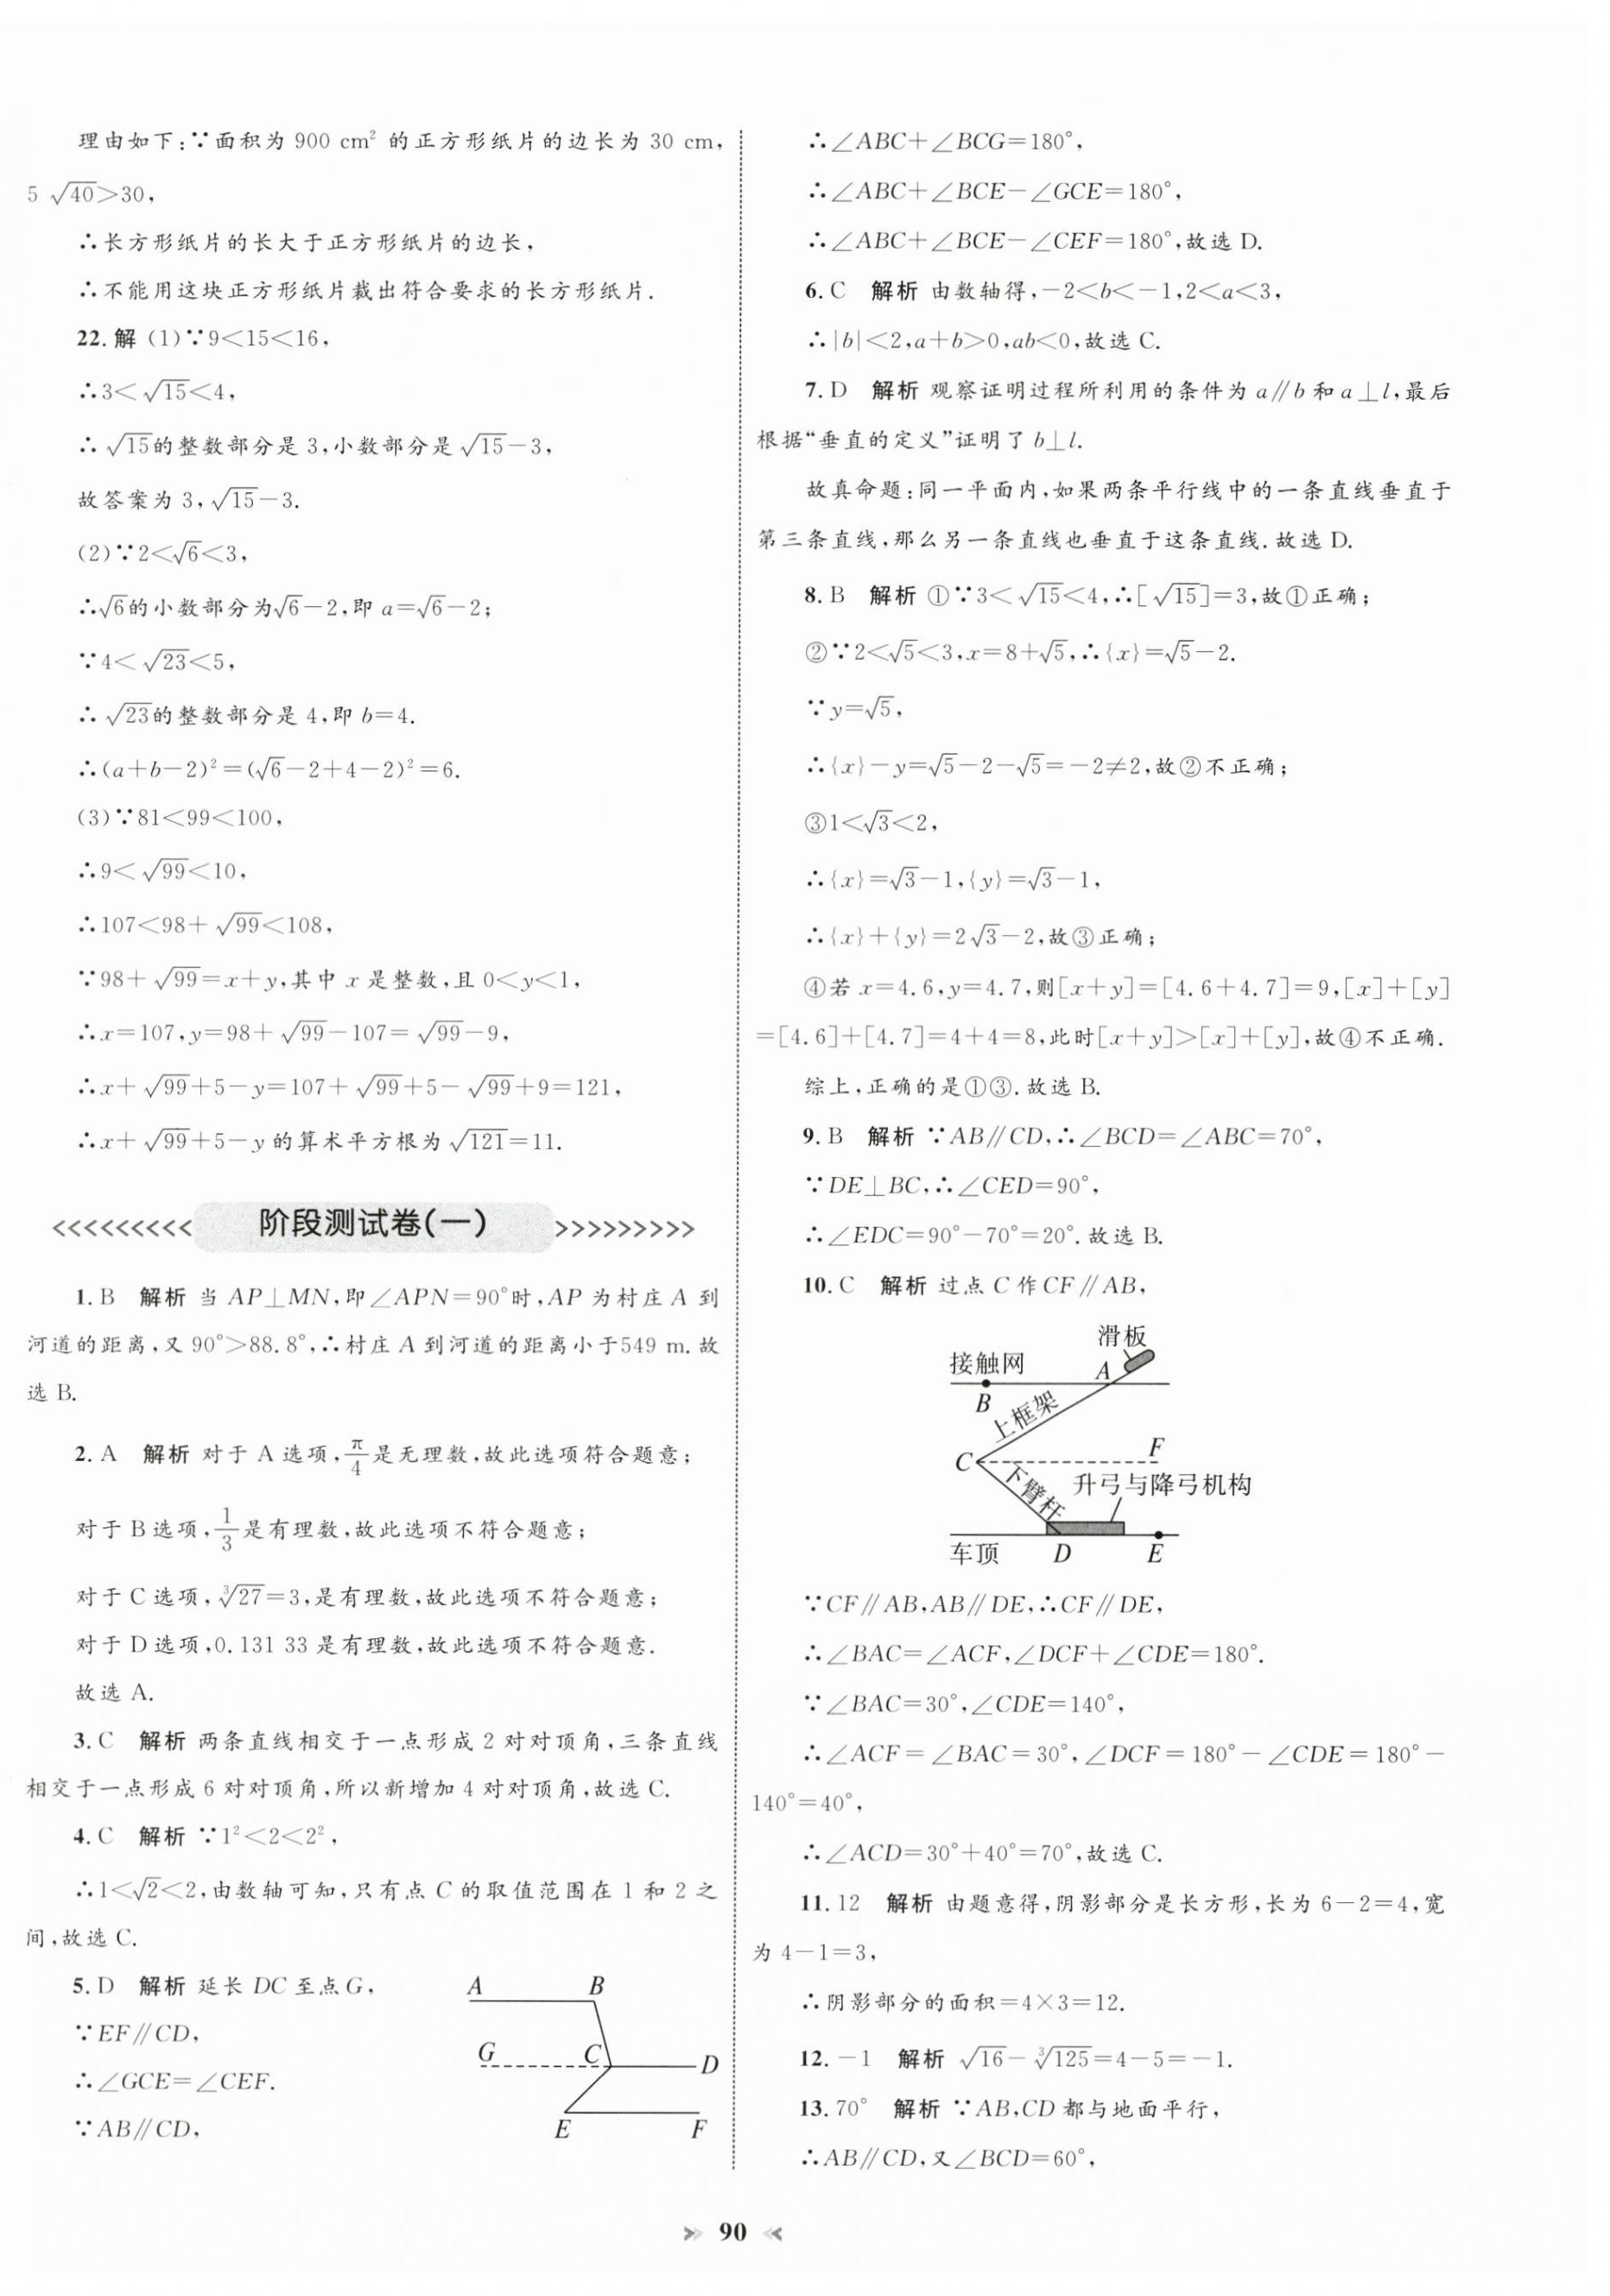 理由如下:∵面积为 900 cm² 的正方形纸片的边长为 30 cm,
5 √40>30,
∴长方形纸片的长大于正方形纸片的边长,
∴不能用这块正方形纸片裁出符合要求的长方形纸片.
22.解 (1)∵9<15<16,
∴3<√15<4,
∴√15的整数部分是 3,小数部分是√15-3,
故答案为 3,√15-3.
(2)∵2<√6<3,
∴√6的小数部分为√6-2,即 a=√6-2;
∵4<√23<5,
∴√23的整数部分是 4,即 b=4.
∴(a+b-2)²=(√6-2+4-2)²=6.
(3)∵81<99<100,
∴9<√99<10,
∴107<98+√99<108,
∵98+√99=x+y,其中 x 是整数,且 0<y<1,
∴x=107,y=98+√99-107=√99-9,
∴x+√99+5-y=107+√99+5-√99+9=121,
∴x+√99+5-y 的算术平方根为√121=11.
<<<<<<<<< 阶段测试卷(一) >>>>>>>>>
1. B 解析 当 AP⊥MN,即∠APN=90°时,AP 为村庄 A 到
河道的距离,又 90°>88.8°,∴村庄 A 到河道的距离小于549 m.故
选 B.
2. A 解析 对于 A 选项,π/4是无理数,故此选项符合题意;
对于 B 选项,1/3是有理数,故此选项不符合题意;
对于 C 选项,∛27=3,是有理数,故此选项不符合题意;
对于 D 选项,0.131 33 是有理数,故此选项不符合题意.
故选 A.
3. C 解析 两条直线相交于一点形成 2 对对顶角,三条直线
相交于一点形成 6 对对顶角,所以新增加 4 对对顶角,故选 C.
4. C 解析 ∵1²<2<2²,
∴1<√2<2,由数轴可知,只有点 C 的取值范围在 1 和 2 之
间,故选 C.
5. D 解析 延长 DC 至点 G,
∵EF∥CD,
∴∠GCE=∠CEF.
∵AB∥CD,
A B
G C D
E F
∴∠ABC+∠BCG=180°,
∴∠ABC+∠BCE-∠GCE=180°,
∴∠ABC+∠BCE-∠CEF=180°,故选 D.
6. C 解析 由数轴得,-2<b<-1,2<a<3,
∴|b|<2,a+b>0,ab<0,故选 C.
7. D 解析 观察证明过程所利用的条件为 a∥b 和 a⊥l,最后
根据“垂直的定义”证明了 b⊥l.
故真命题:同一平面内,如果两条平行线中的一条直线垂直于
第三条直线,那么另一条直线也垂直于这条直线.故选 D.
8. B 解析 ①∵3<√15<4,∴[√15]=3,故①正确;
②∵2<√5<3,x=8+√5,∴{x}=√5-2.
∵y=√5,
∴{x}-y=√5-2-√5=-2≠2,故②不正确;
③1<√3<2,
∴{x}=√3-1,{y}=√3-1,
∴{x}+{y}=2√3-2,故③正确;
④若 x=4.6,y=4.7,则[x+y]=[4.6+4.7]=9,[x]+[y]
=[4.6]+[4.7]=4+4=8,此时[x+y]>[x]+[y],故④不正确.
综上,正确的是①③.故选 B.
9. B 解析 ∵AB∥CD,∴∠BCD=∠ABC=70°,
∵DE⊥BC,∴∠CED=90°,
∴∠EDC=90°-70°=20°.故选 B.
10. C 解析 过点 C 作 CF∥AB,
滑板
接触网 A
B 上框架
C F
下臂杆 升弓与降弓机构
车顶 D E
∵CF∥AB,AB∥DE,∴CF∥DE,
∴∠BAC=∠ACF,∠DCF+∠CDE=180°.
∵∠BAC=30°,∠CDE=140°,
∴∠ACF=∠BAC=30°,∠DCF=180°-∠CDE=180°-
140°=40°,
∴∠ACD=30°+40°=70°,故选 C.
11. 12 解析 由题意得,阴影部分是长方形,长为 6-2=4,宽
为 4-1=3,
∴阴影部分的面积=4×3=12.
12. -1 解析 √16-∛125=4-5=-1.
13. 70° 解析 ∵AB,CD 都与地面平行,
∴AB∥CD,又∠BCD=60°,
90